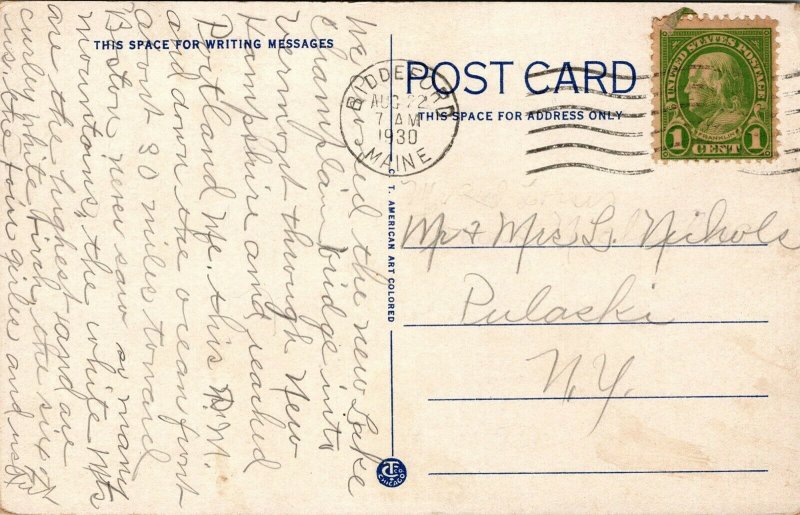 THIS SPACE FOR WRITING MESSAGES
We crossed the new Lake
Champlain bridge into
Vermont through New
Hampshire and reached
Portland Me. this P.M.
and down the ocean front
about 30 miles toward
Boston, never saw so many
mountains, the white Mts
are the highest and are
curley white birch, the six of
us. the four girls and us
POST CARD
THIS SPACE FOR ADDRESS ONLY
BIDDEFORD
AUG 22
7 AM
1930
MAINE
UNITED STATES POSTAGE
FRANKLIN
1 CENT 1
Mr & Mrs L. Nichols
Pulaski
N.Y.
C. T. AMERICAN ART COLORED
CT CO
CHICAGO